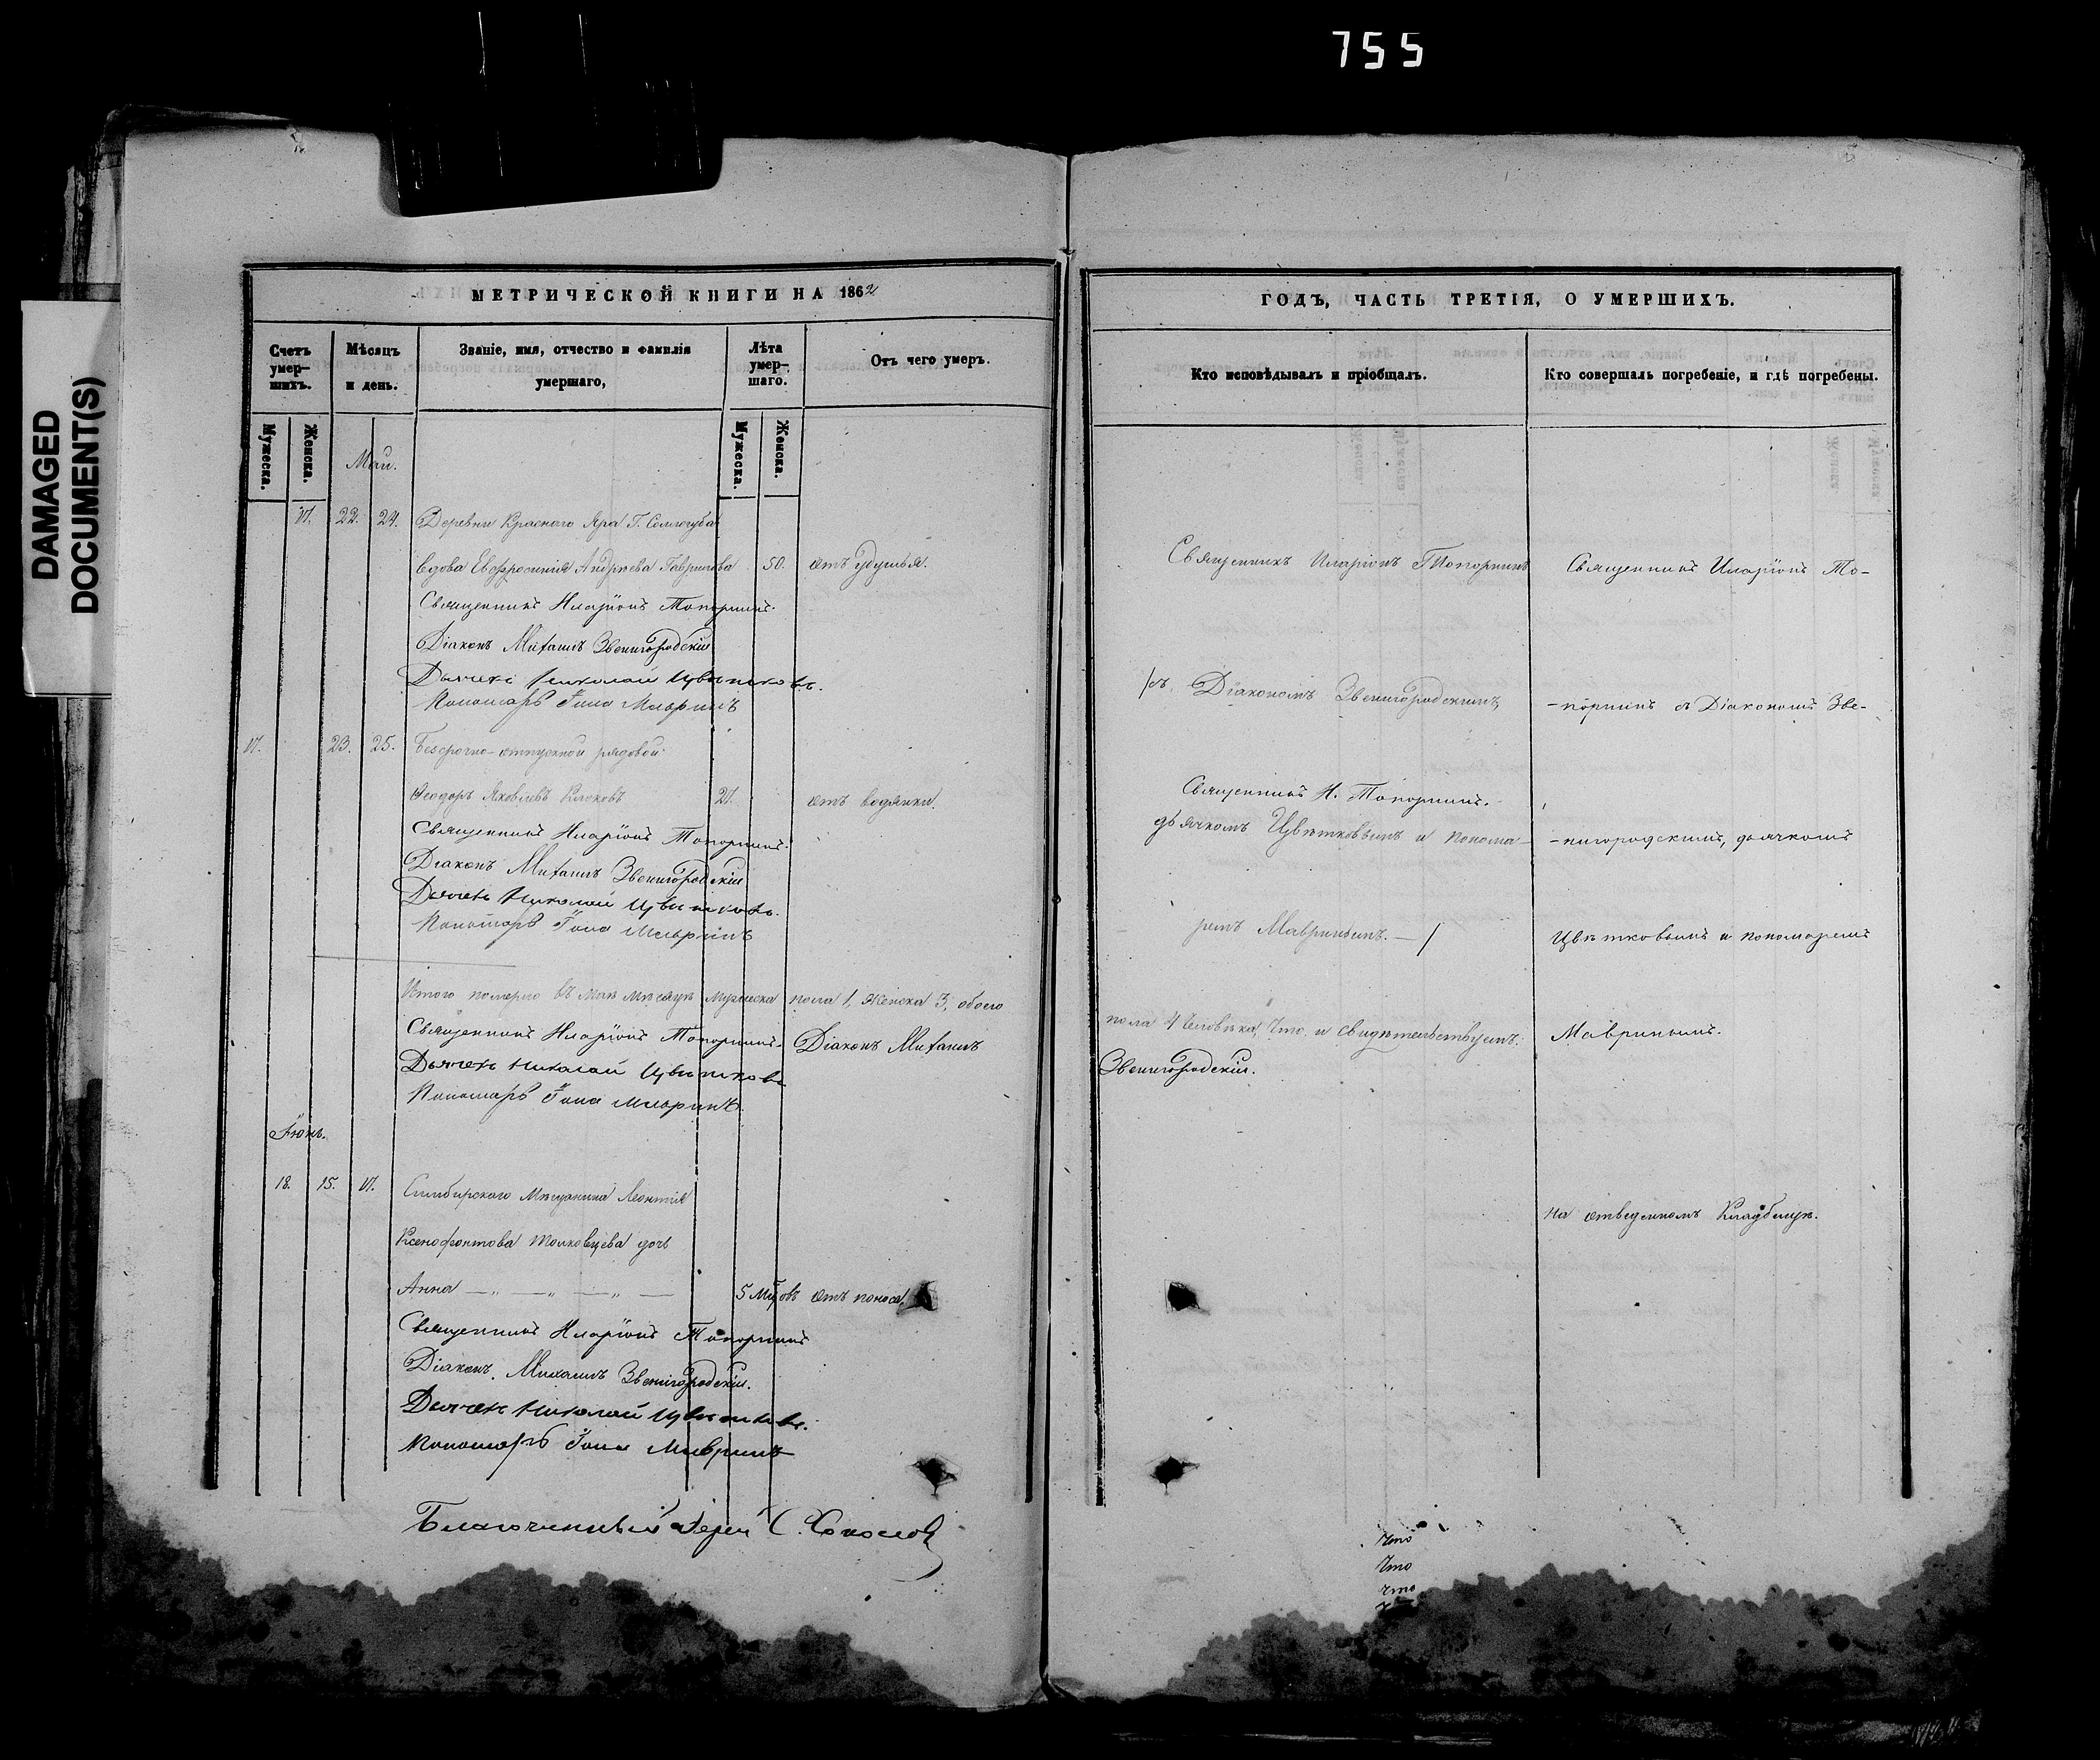 755
DAMAGED
DOCUMENT(S)
МЕТРИЧЕСКОЙ КНИГИ НА 1862
Счетъ умер-шихъ.
Мѣсяцъ и день.
Званіе, имя, отчество и фамилія умершаго,
Лѣта умер-шаго.
Отъ чего умеръ.
Мужеска.
Женска.
Мужеска.
Женска.
Маи.
17. 22. 24. Деревни Краснаго Яра Г.
вдова Евфросинія Андреева Гаврилова 50. отъ удушья.
Священникъ Иларіонъ Топорнинъ.
Діаконъ Михаилъ Звенигородскій
Дьячекъ Николай Цвѣтковъ.
Пономарь Іона Мавринъ
17. 23. 25. Безсрочно-отпускной рядовой
Ѳеодоръ Яковлевъ 27. отъ водянки.
Священникъ Иларіонъ Топорнинъ.
Діаконъ Михаилъ Звенигородскій
Дьячекъ Николай Цвѣтковъ.
Пономарь Іона Мавринъ
Итого померло въ маѣ мѣсяцѣ мужеска пола 1, женска 3, обоего
Священникъ Иларіонъ Топорнинъ. Діаконъ Михаилъ
Дьячекъ Николай Цвѣтковъ
Пономарь Іона Мавринъ.
Іюнь.
18. 15. 17. Симбирскаго Мѣщанина Леонтія
Ксенофонтова дочь
Анна — „ — „ — „ — 5 Мцовъ отъ поноса.
Священникъ Иларіонъ Топорнинъ
Діаконъ Михаилъ Звенигородскій.
Дьячекъ Николай Цвѣтковъ.
Пономарь Іона Мавринъ
Благочинный Іерей С. Соколовъ
ГОДЪ, ЧАСТЬ ТРЕТІЯ, О УМЕРШИХЪ.
Кто исповѣдывалъ и пріобщалъ.
Кто совершалъ погребеніе, и гдѣ погребены.
Священникъ Иларіонъ Топорнинъ
/съ Діакономъ Звенигородскимъ,
Священникъ И. Топорнинъ.
дьячкомъ Цвѣтковымъ и понома-
ремъ Мавринымъ. — /
пола 4 человѣка, что и свидѣтельствуемъ:
Звенигородскій.
Священникъ Иларіонъ То-
-порнинъ съ Діакономъ Зве-
-нигородскимъ, дьячкомъ
Цвѣтковымъ и пономаремъ
Мавринымъ.
на отведенномъ Кладбищѣ.
что
что
что